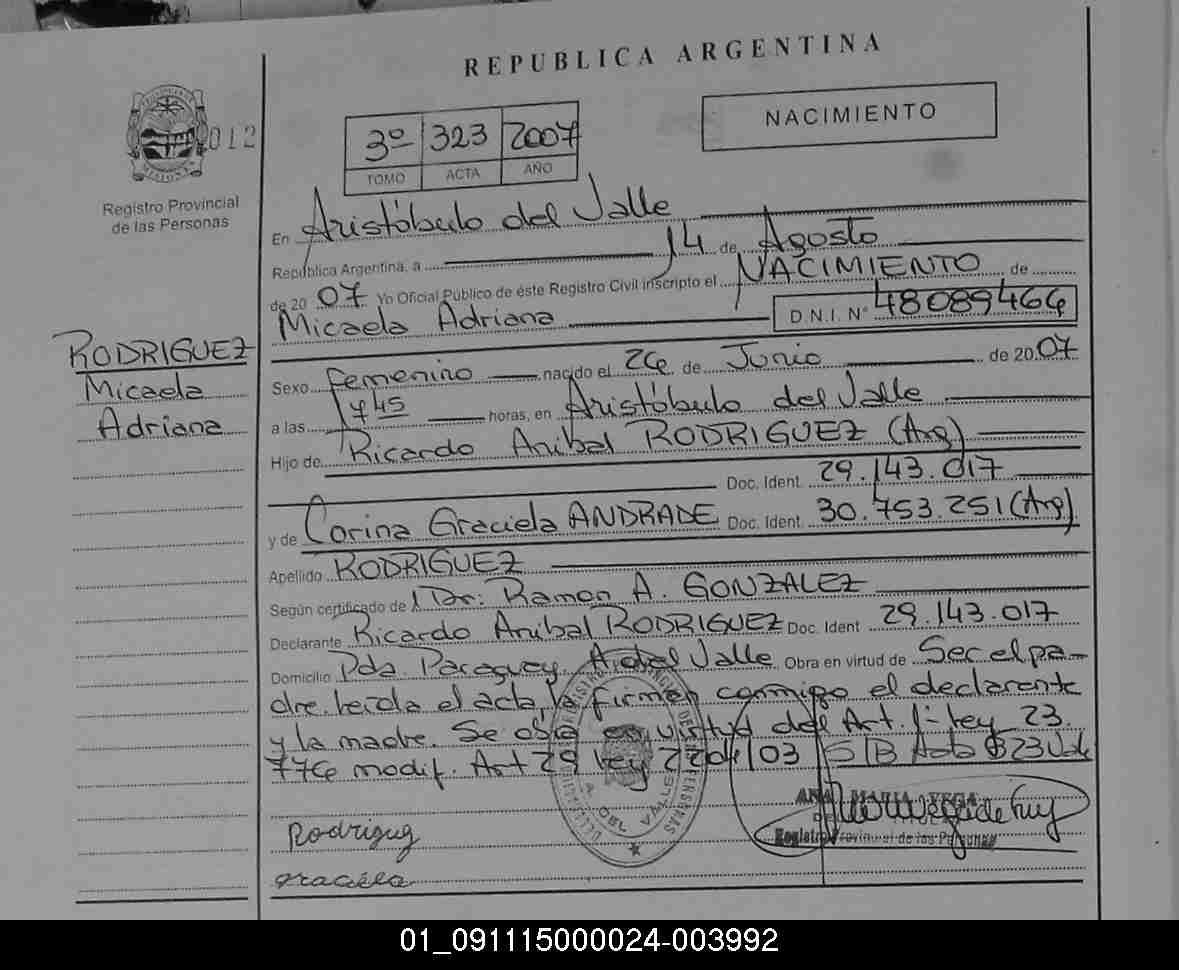 REPUBLICA ARGENTINA
NACIMIENTO
012
3º 323 2007
TOMO ACTA AÑO
Registro Provincial
de las Personas
MISIONES
En Aristóbulo del Valle
República Argentina, a 14 de Agosto
de 2007 Yo Oficial Público de éste Registro Civil inscripto el NACIMIENTO de
Micaela Adriana D.N.I. Nº 48089464
RODRIGUEZ
Micaela
Adriana
Sexo femenino nacido el 24 de Junio de 2007
a las 1745 horas, en Aristóbulo del Valle
Hijo de Ricardo Anibal RODRIGUEZ (Arg)
Doc. Ident. 29.143.017
y de Corina Graciela ANDRADE Doc. Ident. 30.753.251 (Arg)
Apellido RODRIGUEZ
Según certificado de Dr: Ramon A. GONZALEZ
Declarante Ricardo Anibal RODRIGUEZ Doc. Ident 29.143.017
Domicilio Pda Paraguay. A. del Valle Obra en virtud de Ser el pa-
dre. Leida el acta, la firman conmigo el declarante
y la madre. Se obra en virtud del Art. 1- ley 23.
776 modif. Art 29 ley 22
ANA MARIA VEGA
Registro Provincial de las Personas
A. DEL VALLE
Rodrigug
graciela
01_091115000024-003992